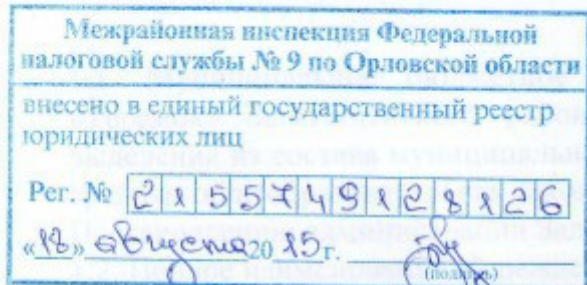 Межрайонная инспекция Федеральной
налоговой службы № 9 по Орловской области
внесено в единый государственный реестр
юридических лиц
Рег. № 2155749128126
«18» августа 2015г.
(подпись)